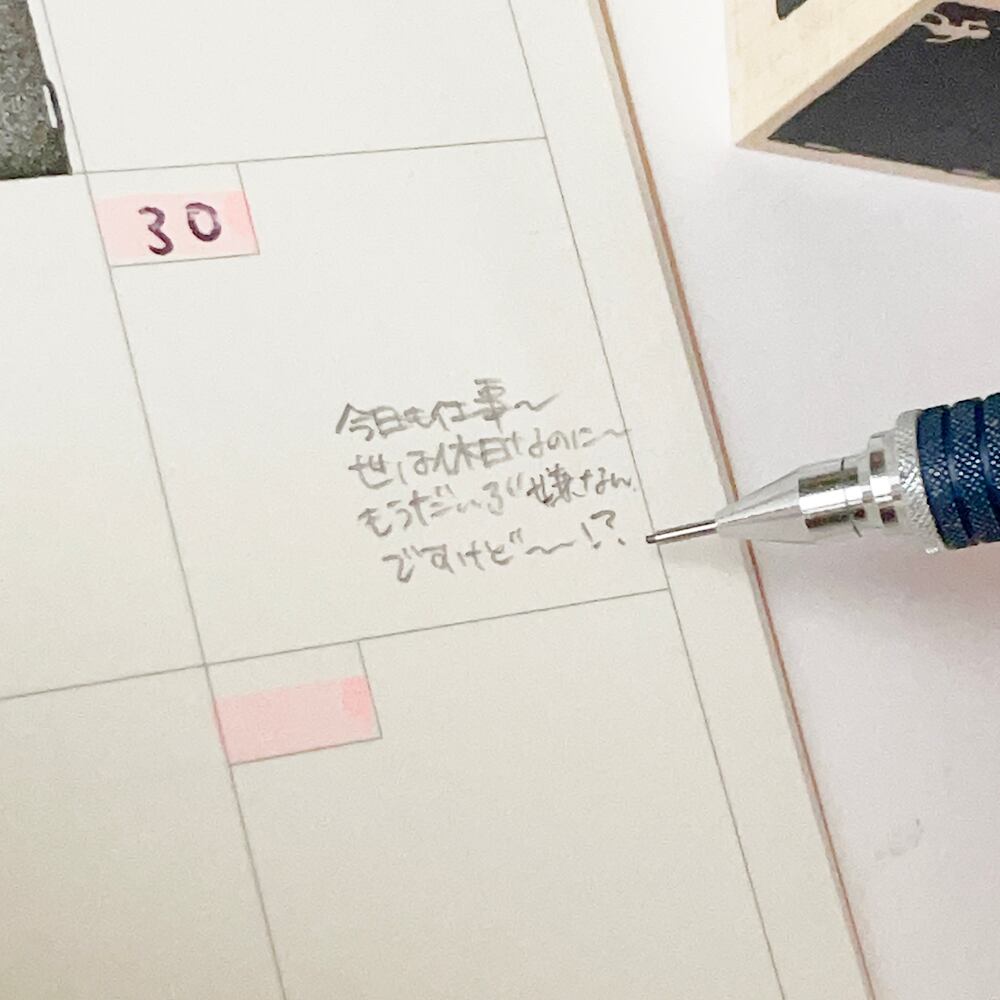 30
今日も仕事〜
世は休日なのに〜
もうだいぶ嫌なん
ですけど〜!?